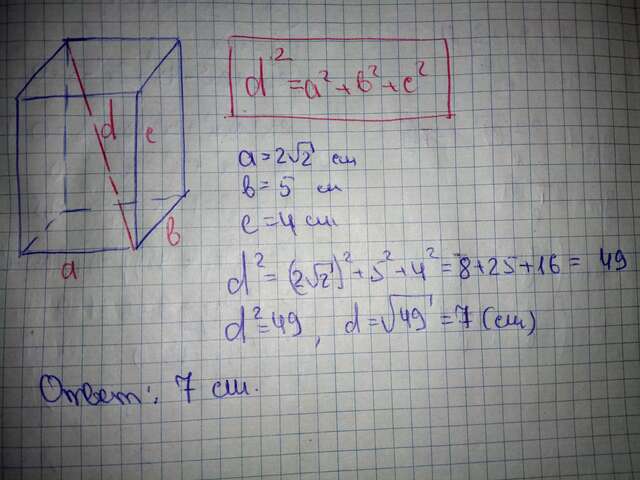 a
b
c
d
d² = a² + b² + c²
a = 2√2 см
b = 5 см
c = 4 см
d² = (2√2)² + 5² + 4² = 8 + 25 + 16 = 49
d² = 49, d = √49 = 7 (см)
Ответ: 7 см.